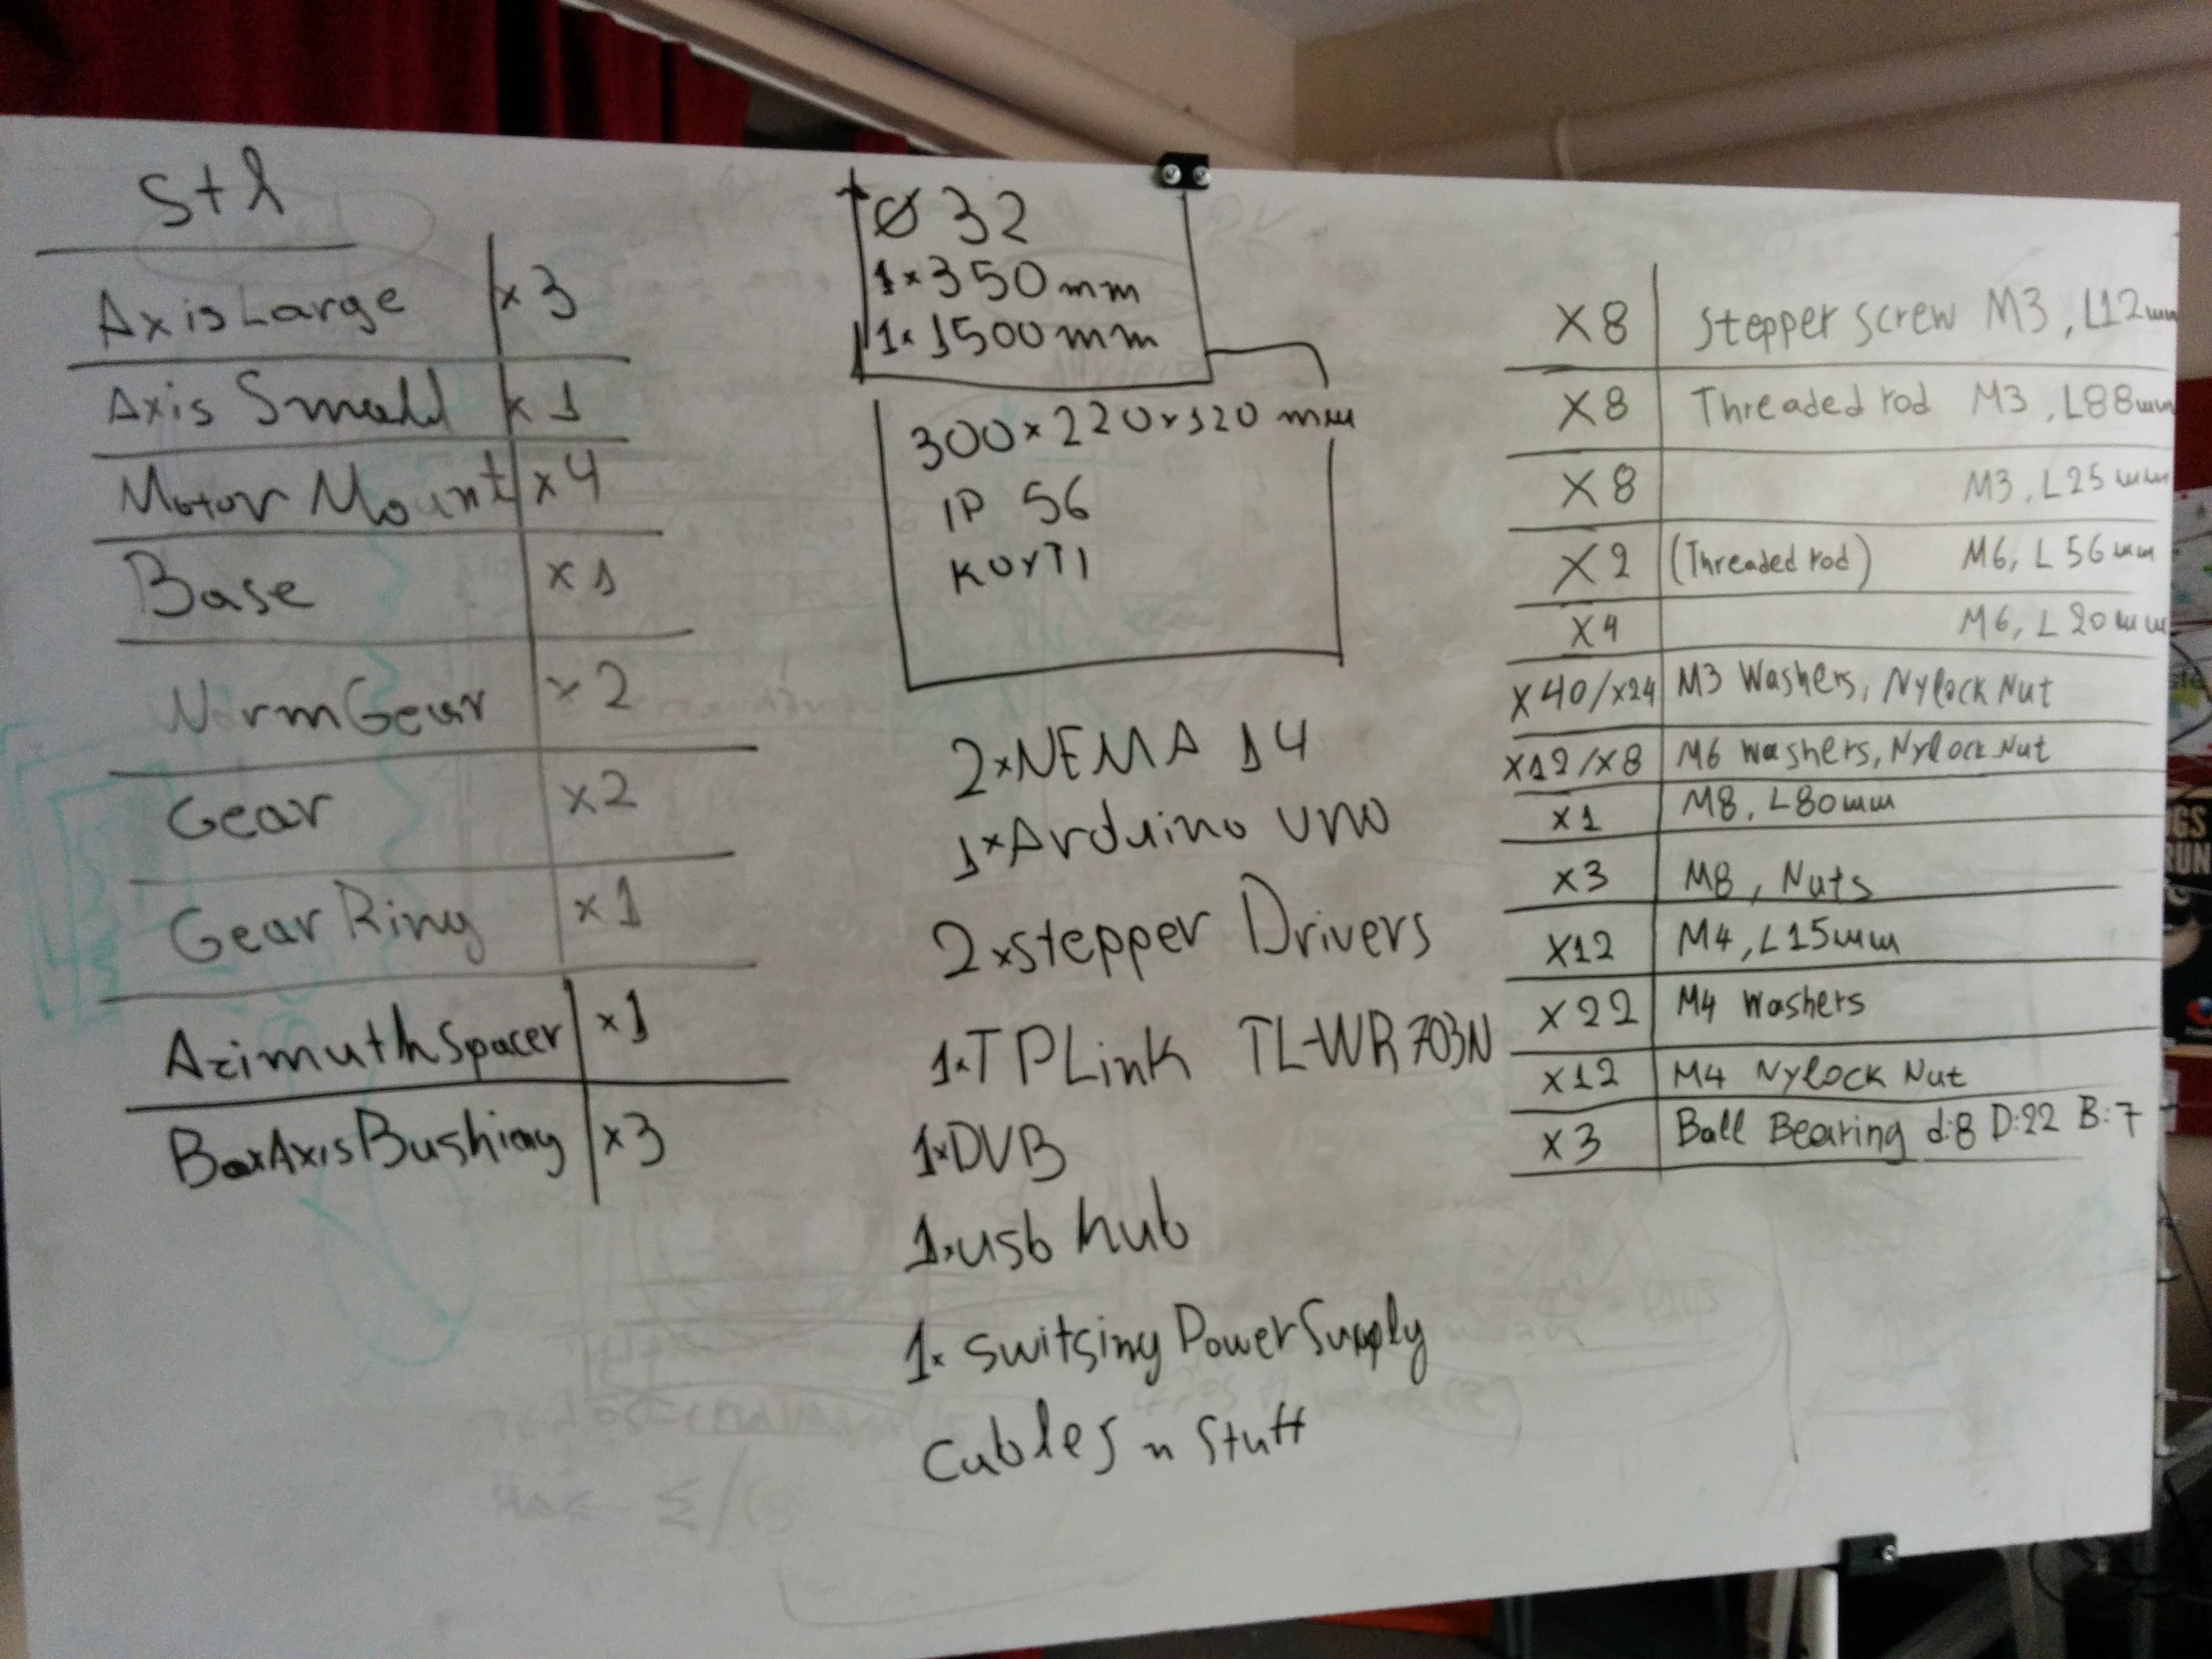 stl
AxisLarge x3
Axis Small x1
Motor Mount x4
Base x1
WormGear x2
Gear x2
GearRing x1
AzimuthSpacer x1
BoxAxisBushing x3
Ø 32
1x350mm
1x1500mm
300x220x120 mm
IP 56
KOYTI
2xNEMA 14
1xArduino uno
2xstepper Drivers
1xTPLink TL-WR703N
1xDVB
1xusb hub
1x switsing PowerSupply
Cables n stuff
X8 Stepper screw M3, L12mm
X8 Threaded rod M3, L88mm
X8 M3, L25mm
X2 (Threaded rod) M6, L56mm
X4 M6, L20mm
X40/x24 M3 Washers, Nylock Nut
X12/X8 M6 washers, Nylock Nut
X1 M8, L80mm
X3 M8, Nuts
X12 M4, L15mm
X22 M4 Washers
X12 M4 Nylock Nut
X3 Ball Bearing d:8 D:22 B:7
GS
RUN